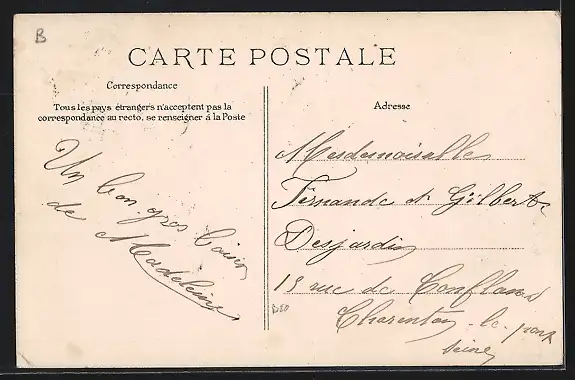 B
CARTE POSTALE
Correspondance
Tous les pays étrangers n'acceptent pas la
correspondance au recto, se renseigner à la Poste
Un bon gros baiser
de Madeleine
Adresse
Mesdemoiselle
Fernande et Gilberte
Desjardin
13 rue de Conflans
Charenton-le-pont
Seine